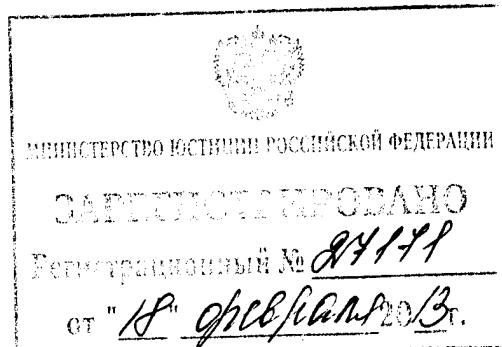 МИНИСТЕРСТВО ЮСТИЦИИ РОССИЙСКОЙ ФЕДЕРАЦИИ
ЗАРЕГИСТРИРОВАНО
Регистрационный № 27171
от "18" февраля 2013г.